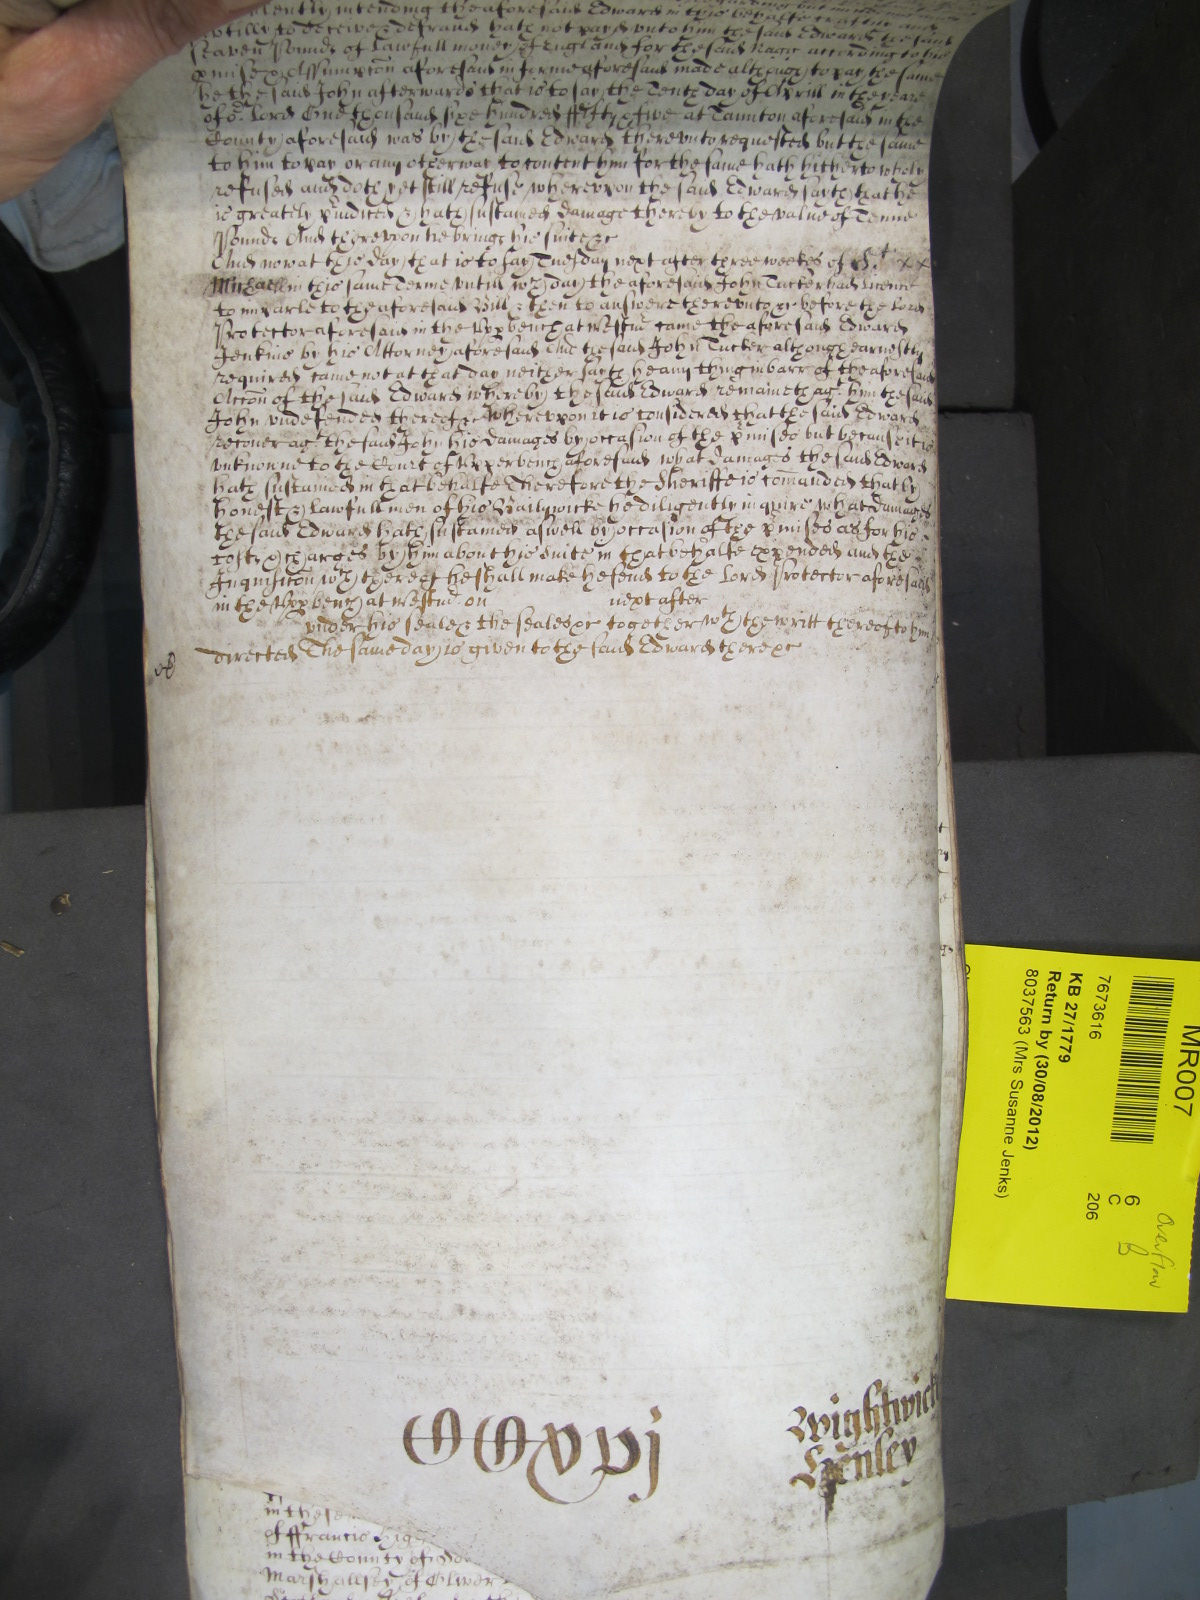 intending the aforesaid Edward in this behalfe
to deceive & defraud hath not payd unto him the said Edward the said
seaven Pounds of Lawfull money of England for the said Nagg according to his
p'mise & Assumpcon aforesaid in forme aforesaid made although to pay the same
he the said John afterwards that is to say the Tenth day of Aprill in the yeare
of or Lord One thousand six hundred ffifty & five at Taunton aforesaid in the
County aforesaid was by the said Edward thereunto requested but the same
to him to pay or any otherway to content him for the same hath hitherto wholy
refused and doth yet still refuse whereupon the said Edward sayth that he
is greatly p'iudiced & hath sustained damage thereby to the value of Tenne
Pounds And thereupon he brings his suite &c
And now at this day that is to say Tuesday next after three weekes of St
Michaell in this same Terme untill wch day the aforesaid John Tucker had licence
to imparle to the aforesaid Bill & then to answere thereunto &c before the Lord
Protector aforesaid in the Upp bench at Westmr came the aforesaid Edward
Jenkins by his Attorney aforesaid And the said John Tucker although earnestly
required came not at that day neither sayth he any thing in barr of the aforesaid
Accon of the said Edward whereby the said Edward remaineth agt him the said
John undefended thereof &c Whereupon it is considered that the said Edward
recover agt the said John his damages by occasion of the p'mises but because it is
unknowne to the Court of Upper bench aforesaid what damages the said Edward
hath sustained in that behalfe Therefore the Sheriffe is comanded that by
honest & Lawfull men of his Bailywicke he diligently inquire what damages
the said Edward hath sustained aswell by occasion of the p'mises as for his
costs & charges by him about his suite in that behalfe expended and the
Inquisicon wch thereof he shall make he send to the Lord Protector aforesaid
in the Upp bench at Westmr on next after
under his seale & the seales &c together wth the writt thereof to him
directed The same day is given to the said Edward there &c
Wightwick
Henley
in the
of ffrancis
in the County of
Marshallsey of Oliver
MR007
7673616
6
C
206
KB 27/1779
Return by (30/08/2012)
8037563 (Mrs Susanne Jenks)
Overflow
B